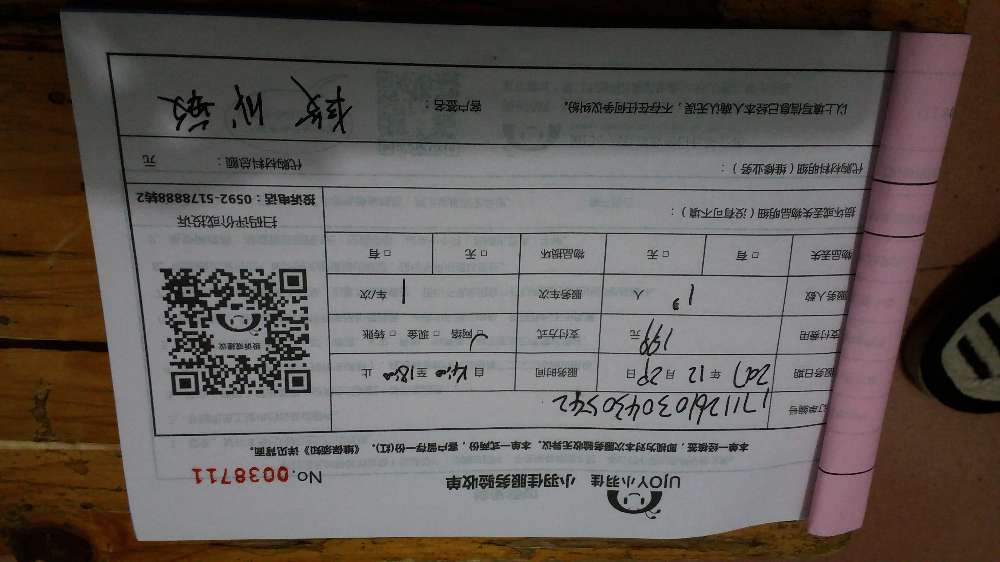 UJOY小羽佳 小羽佳服务验收单 No.0038711
本单一经核签,即视为对本次服务验收无异议。本单一式两份,客户留存一份(红),《维保须知》详见背面。
订单编号
服务日期 2017 年 12 月 29 日 服务时间 自 至 18:00 止
支付费用 199 元 支付方式 □ 网络 □ 现金 □ 转账
服务人数 人 服务车次 车/次
物品丢失 □ 有 □ 无 物品损坏 □ 无 □ 有
投诉或建议
扫码评价或投诉
投诉电话:0592-5178888转2
损坏或丢失物品明细(没有可不填):
代购材料明细(维修业务): 代购材料总额: 元
以上填写信息已经本人确认无误,不存在任何争议纠纷。 客户签名: